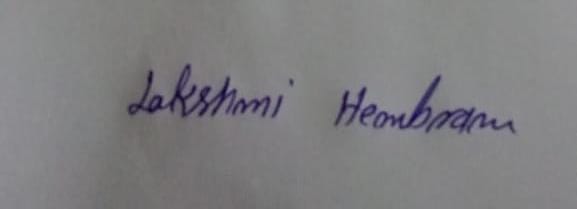 Lakshmi Hembram